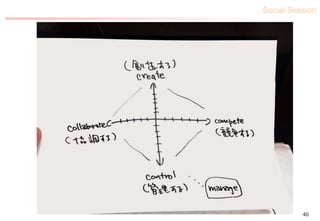 Social Session
(創造する)
create
collaborate
(協調する)
compete
(競争する)
control
(管理する)
manage
40